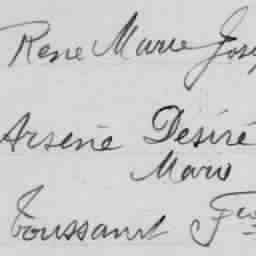 Rene Marie Jos
Arsene Désiré
Marie
Toussaint